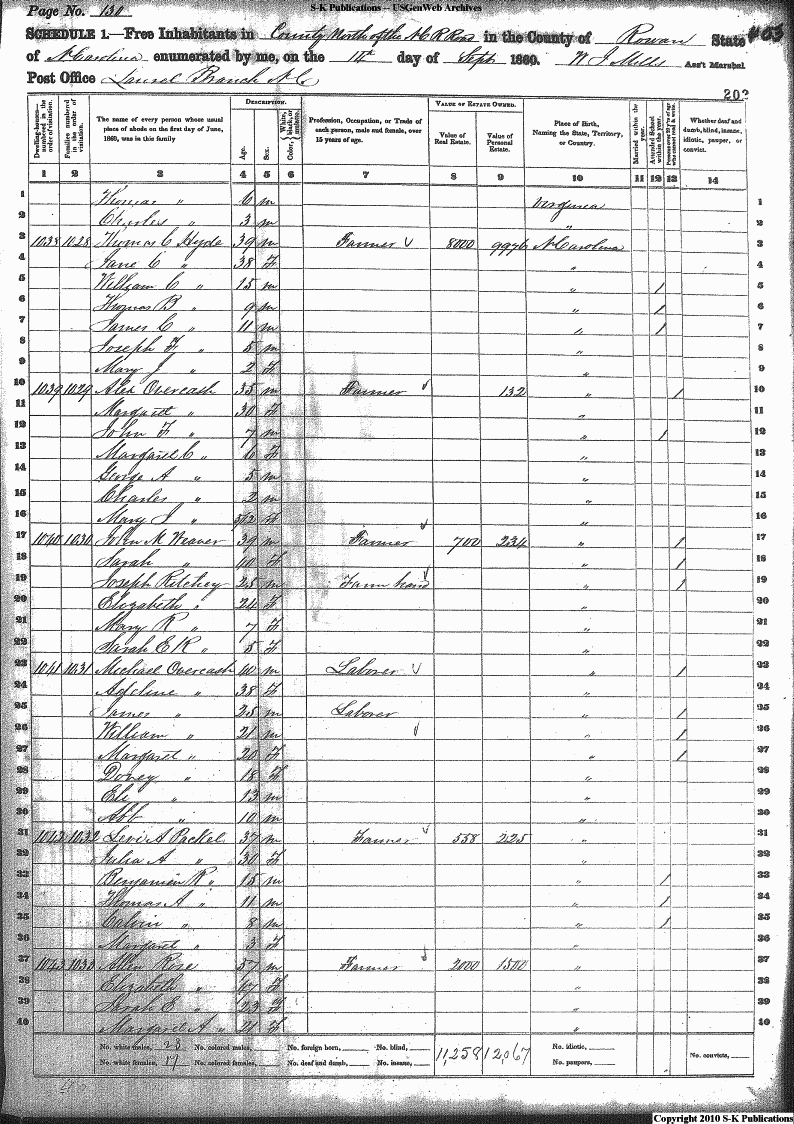 S-K Publications -- USGenWeb Archives
Page No. 130
SCHEDULE 1.—Free Inhabitants in County North of the N C R Road in the County of Rowan State
of N. Carolina enumerated by me, on the 11th day of Sept 1860. W J Mills Ass't Marshal
Post Office Laurel Branch N C
203
Dwelling-houses—numbered in the order of visitation. Families numbered in the order of visitation. The name of every person whose usual place of abode on the first day of June, 1860, was in this family DESCRIPTION. Age. Sex. Color, White, black, or mulatto. Profession, Occupation, or Trade of each person, male and female, over 15 years of age. VALUE OF ESTATE OWNED. Value of Real Estate. Value of Personal Estate. Place of Birth, Naming the State, Territory, or Country. Married within the year. Attended School within the year. Persons over 20 y'rs of age who cannot read & write. Whether deaf and dumb, blind, insane, idiotic, pauper, or convict.
1 2 3 4 5 6 7 8 9 10 11 12 13 14
1 Thomas " 6 m Virginia 1
2 Charles " 3 m " 2
3 1038 1028 Thomas C Hyde 39 m Farmer 8000 9976 N Carolina 3
4 Jane C " 38 F " 4
5 William C " 15 m " / 5
6 Thomas B " 9 m " / 6
7 James C " 11 m " / 7
8 Joseph F " 5 m " 8
9 Mary J " 2 F " 9
10 1039 1029 Alex Overcash 35 m Farmer 132 " / 10
11 Margaret " 30 F " 11
12 John F " 7 m " / 12
13 Margaret C " 6 F " 13
14 George A " 5 m " 14
15 Charles " 2 m " 15
16 Mary J " F " 16
17 1040 1030 John M Weaver 39 m Farmer 700 234 " / 17
18 Sarah " 40 F " / 18
19 Joseph Ritchey 25 m Farm hand " / 19
20 Elizabeth " 24 F " 20
21 Mary R " 7 F " 21
22 Sarah E R " 5 F " 22
23 1041 1031 Michael Overcash 60 m Laborer " / 23
24 Adeline " 38 F " 24
25 James " 25 m Laborer " / 25
26 William " 21 m " / 26
27 Margaret " 20 F " / 27
28 Dovey " 18 F " 28
29 Eli " 13 m " 29
30 Abb " 10 m " 30
31 1042 1032 Levi A Packel 37 m Farmer 558 225 " 31
32 Julia A " 30 F " 32
33 Benjamin R " 15 m " / 33
34 Thomas A " 11 m " / 34
35 Calvin " 8 m " / 35
36 Margaret " 3 F " 36
37 1043 1033 Allen Rose 57 m Farmer 2000 1500 " 37
38 Elizabeth " F " 38
39 Sarah E " 23 F " 39
40 Margaret A " 21 F " 40
No. white males, 23 No. colored males, No. foreign born, No. blind, 11,258 12,067 No. idiotic, No. convicts,
No. white females, 17 No. colored females, No. deaf and dumb, No. insane, No. paupers,
Copyright 2010 S-K Publications